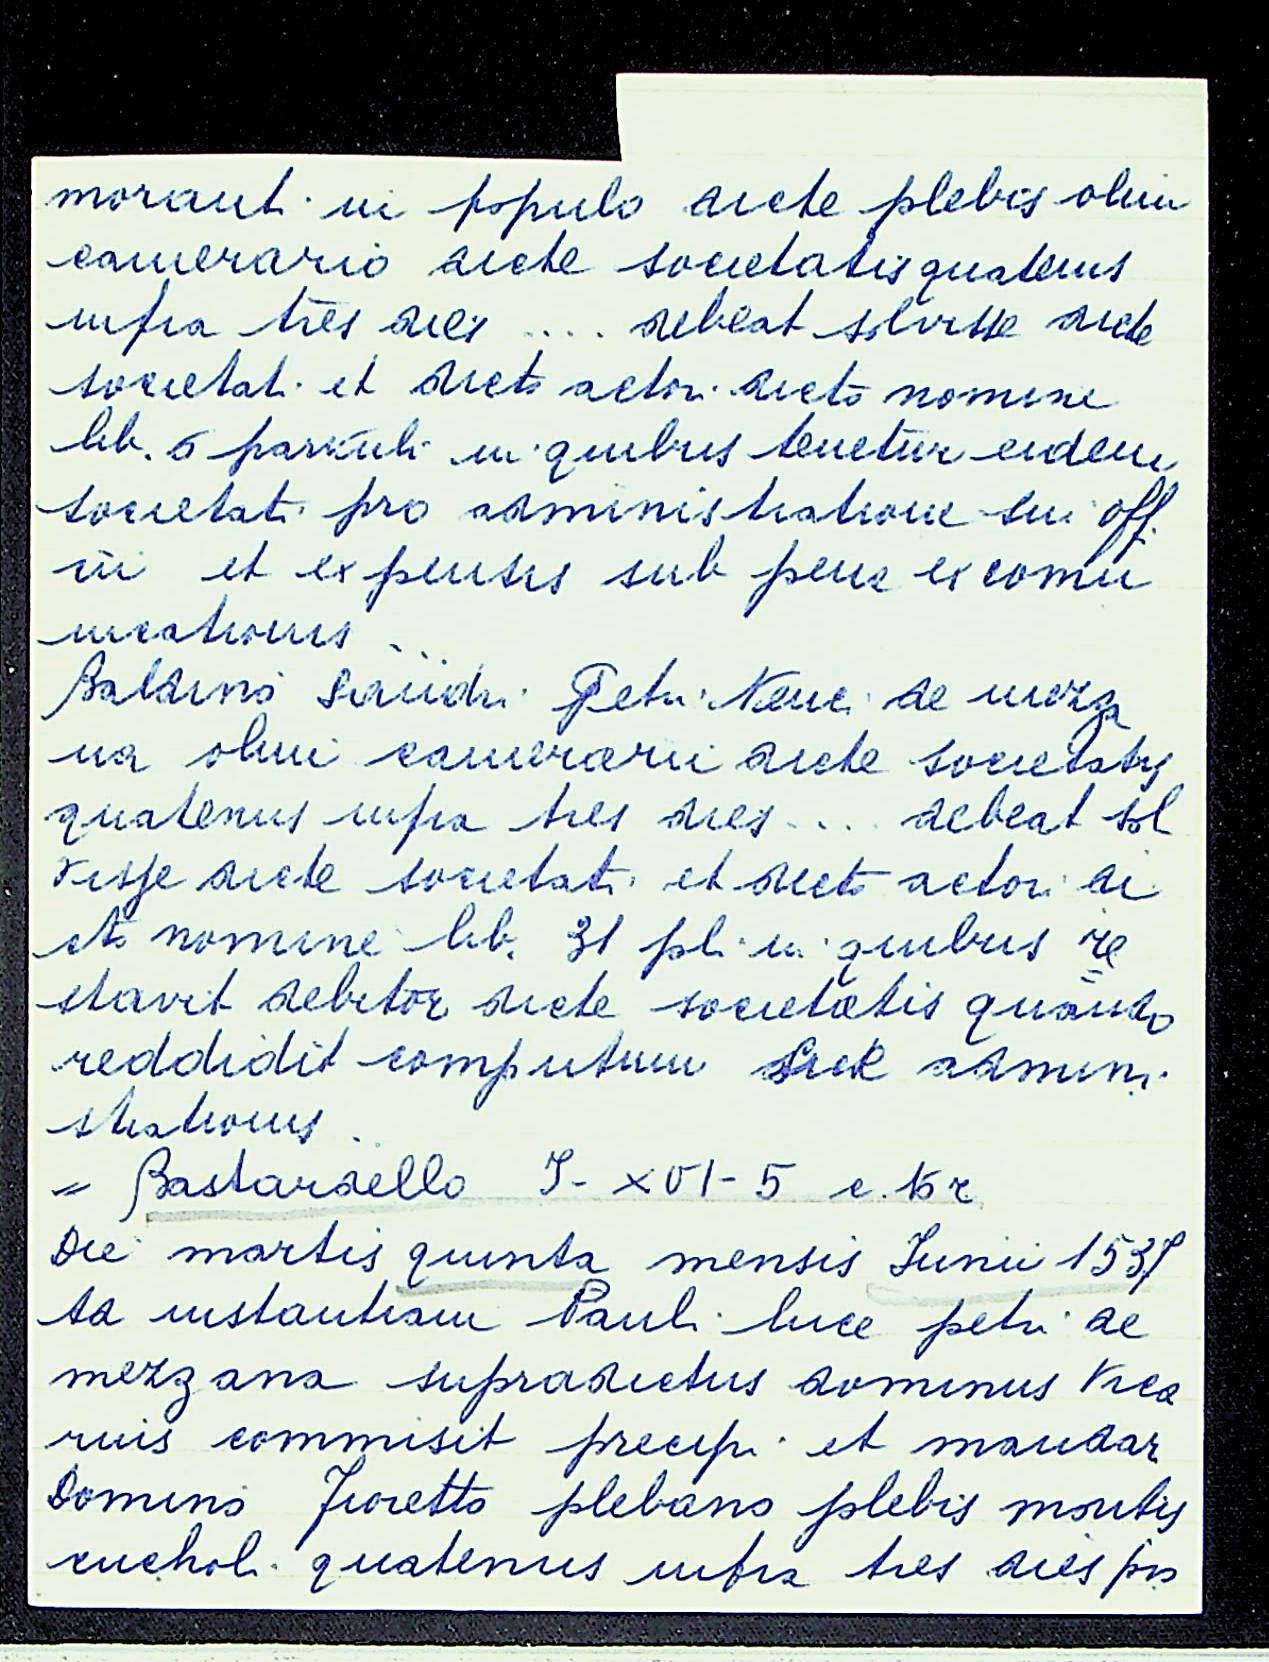 morant. in populo dicte plebis olim
camerario dicte societatis quatenus
infra tres dies .... debeat solvisse dicte
societati et dicto actori dicto nomine
lib. 5 parvuli in quibus tenetur eidem
societati pro administratione sui off.
itii et expensis sub pena excomu
nicationis ...
Baldino Petri Nenci de mezza
na olim camerarii dicte societatis
quatenus infra tres dies .... debeat sol
visse dicte societati et dicto actori di
cto nomine lib. 31 pli in quibus re
stavit debitor dicte societatis quando
reddidit computum sue admini
strationis.
= Bastardello I- XVI- 5 c. 15 r
Die martis quinta mensis Junii 1537
Ad instantiam Pauli luce petri de
mezzana supradictus dominus vica
rius commisit precipi et mandar
Domino Fioretto plebano plebis montis
cucholi quatenus infra tres dies pro